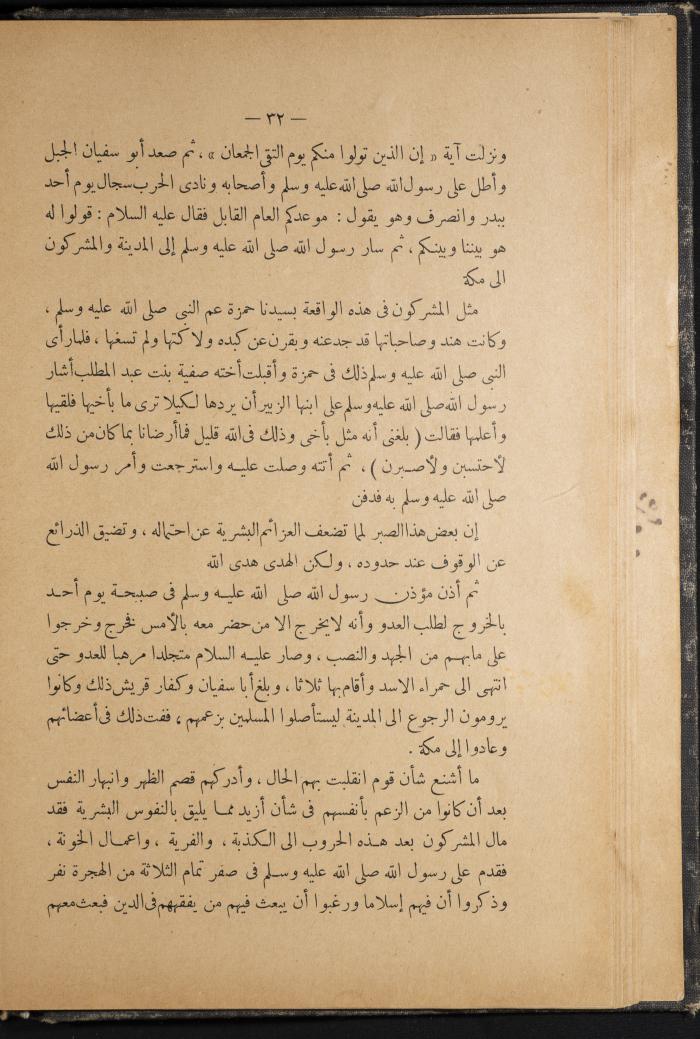 — ٣٢ —
ونزلت آية « إن الذين تولوا منكم يوم التقى الجمعان » ، ثم صعد أبو سفيان الجبل
وأطل على رسول الله صلى الله عليه وسلم وأصحابه ونادى الحرب سجال يوم أحد
ببدر وانصرف وهو يقول : موعدكم العام القابل فقال عليه السلام : قولوا له
هو بيننا وبينكم ، ثم سار رسول الله صلى الله عليه وسلم إلى المدينة والمشركون
الى مكة
مثل المشركون فى هذه الواقعة بسيدنا حمزة عم النبى صلى الله عليه وسلم ،
وكانت هند وصاحباتها قد جدعنه وبقرن عن كبده ولاكتها ولم تسغها ، فلما رأى
النبى صلى الله عليه وسلم ذلك فى حمزة وأقبلت أخته صفية بنت عبد المطلب أشار
رسول الله صلى الله عليه وسلم على ابنها الزبير أن يردها لكيلا ترى ما بأخيها فلقيها
وأعلمها فقالت ( بلغنى أنه مثل بأخى وذلك فى الله قليل فما أرضانا بما كان من ذلك
لأحتسبن ولأصبرن ) ، ثم أتته وصلت عليه واسترجعت وأمر رسول الله
صلى الله عليه وسلم به فدفن
إن بعض هذا الصبر لما تضعف العزائم البشرية عن احتماله ، وتضيق الذرائع
عن الوقوف عند حدوده ، ولكن الهدى هدى الله
ثم أذن مؤذن رسول الله صلى الله عليه وسلم فى صبيحة يوم أحد
بالخروج لطلب العدو وأنه لا يخرج الا من حضر معه بالأمس فخرج وخرجوا
على ما بهم من الجهد والنصب ، وصار عليه السلام متجلدا مرهبا للعدو حتى
انتهى الى حمراء الاسد وأقام بها ثلاثا ، وبلغ أبا سفيان وكفار قريش ذلك وكانوا
يرومون الرجوع الى المدينة ليستأصلوا المسلمين بزعمهم ، ففت ذلك فى أعضائهم
وعادوا إلى مكة .
ما أشنع شأن قوم انقلبت بهم الحال ، وأدركهم قصم الظهر وانبهار النفس
بعد أن كانوا من الزعم بأنفسهم فى شأن أزيد مما يليق بالنفوس البشرية فقد
مال المشركون بعد هذه الحروب الى الكذبة ، والفرية ، واعمال الخونة ،
فقدم على رسول الله صلى الله عليه وسلم فى صفر تمام الثلاثة من الهجرة نفر
وذكروا أن فيهم إسلاما ورغبوا أن يبعث فيهم من يفقههم فى الدين فبعث معهم